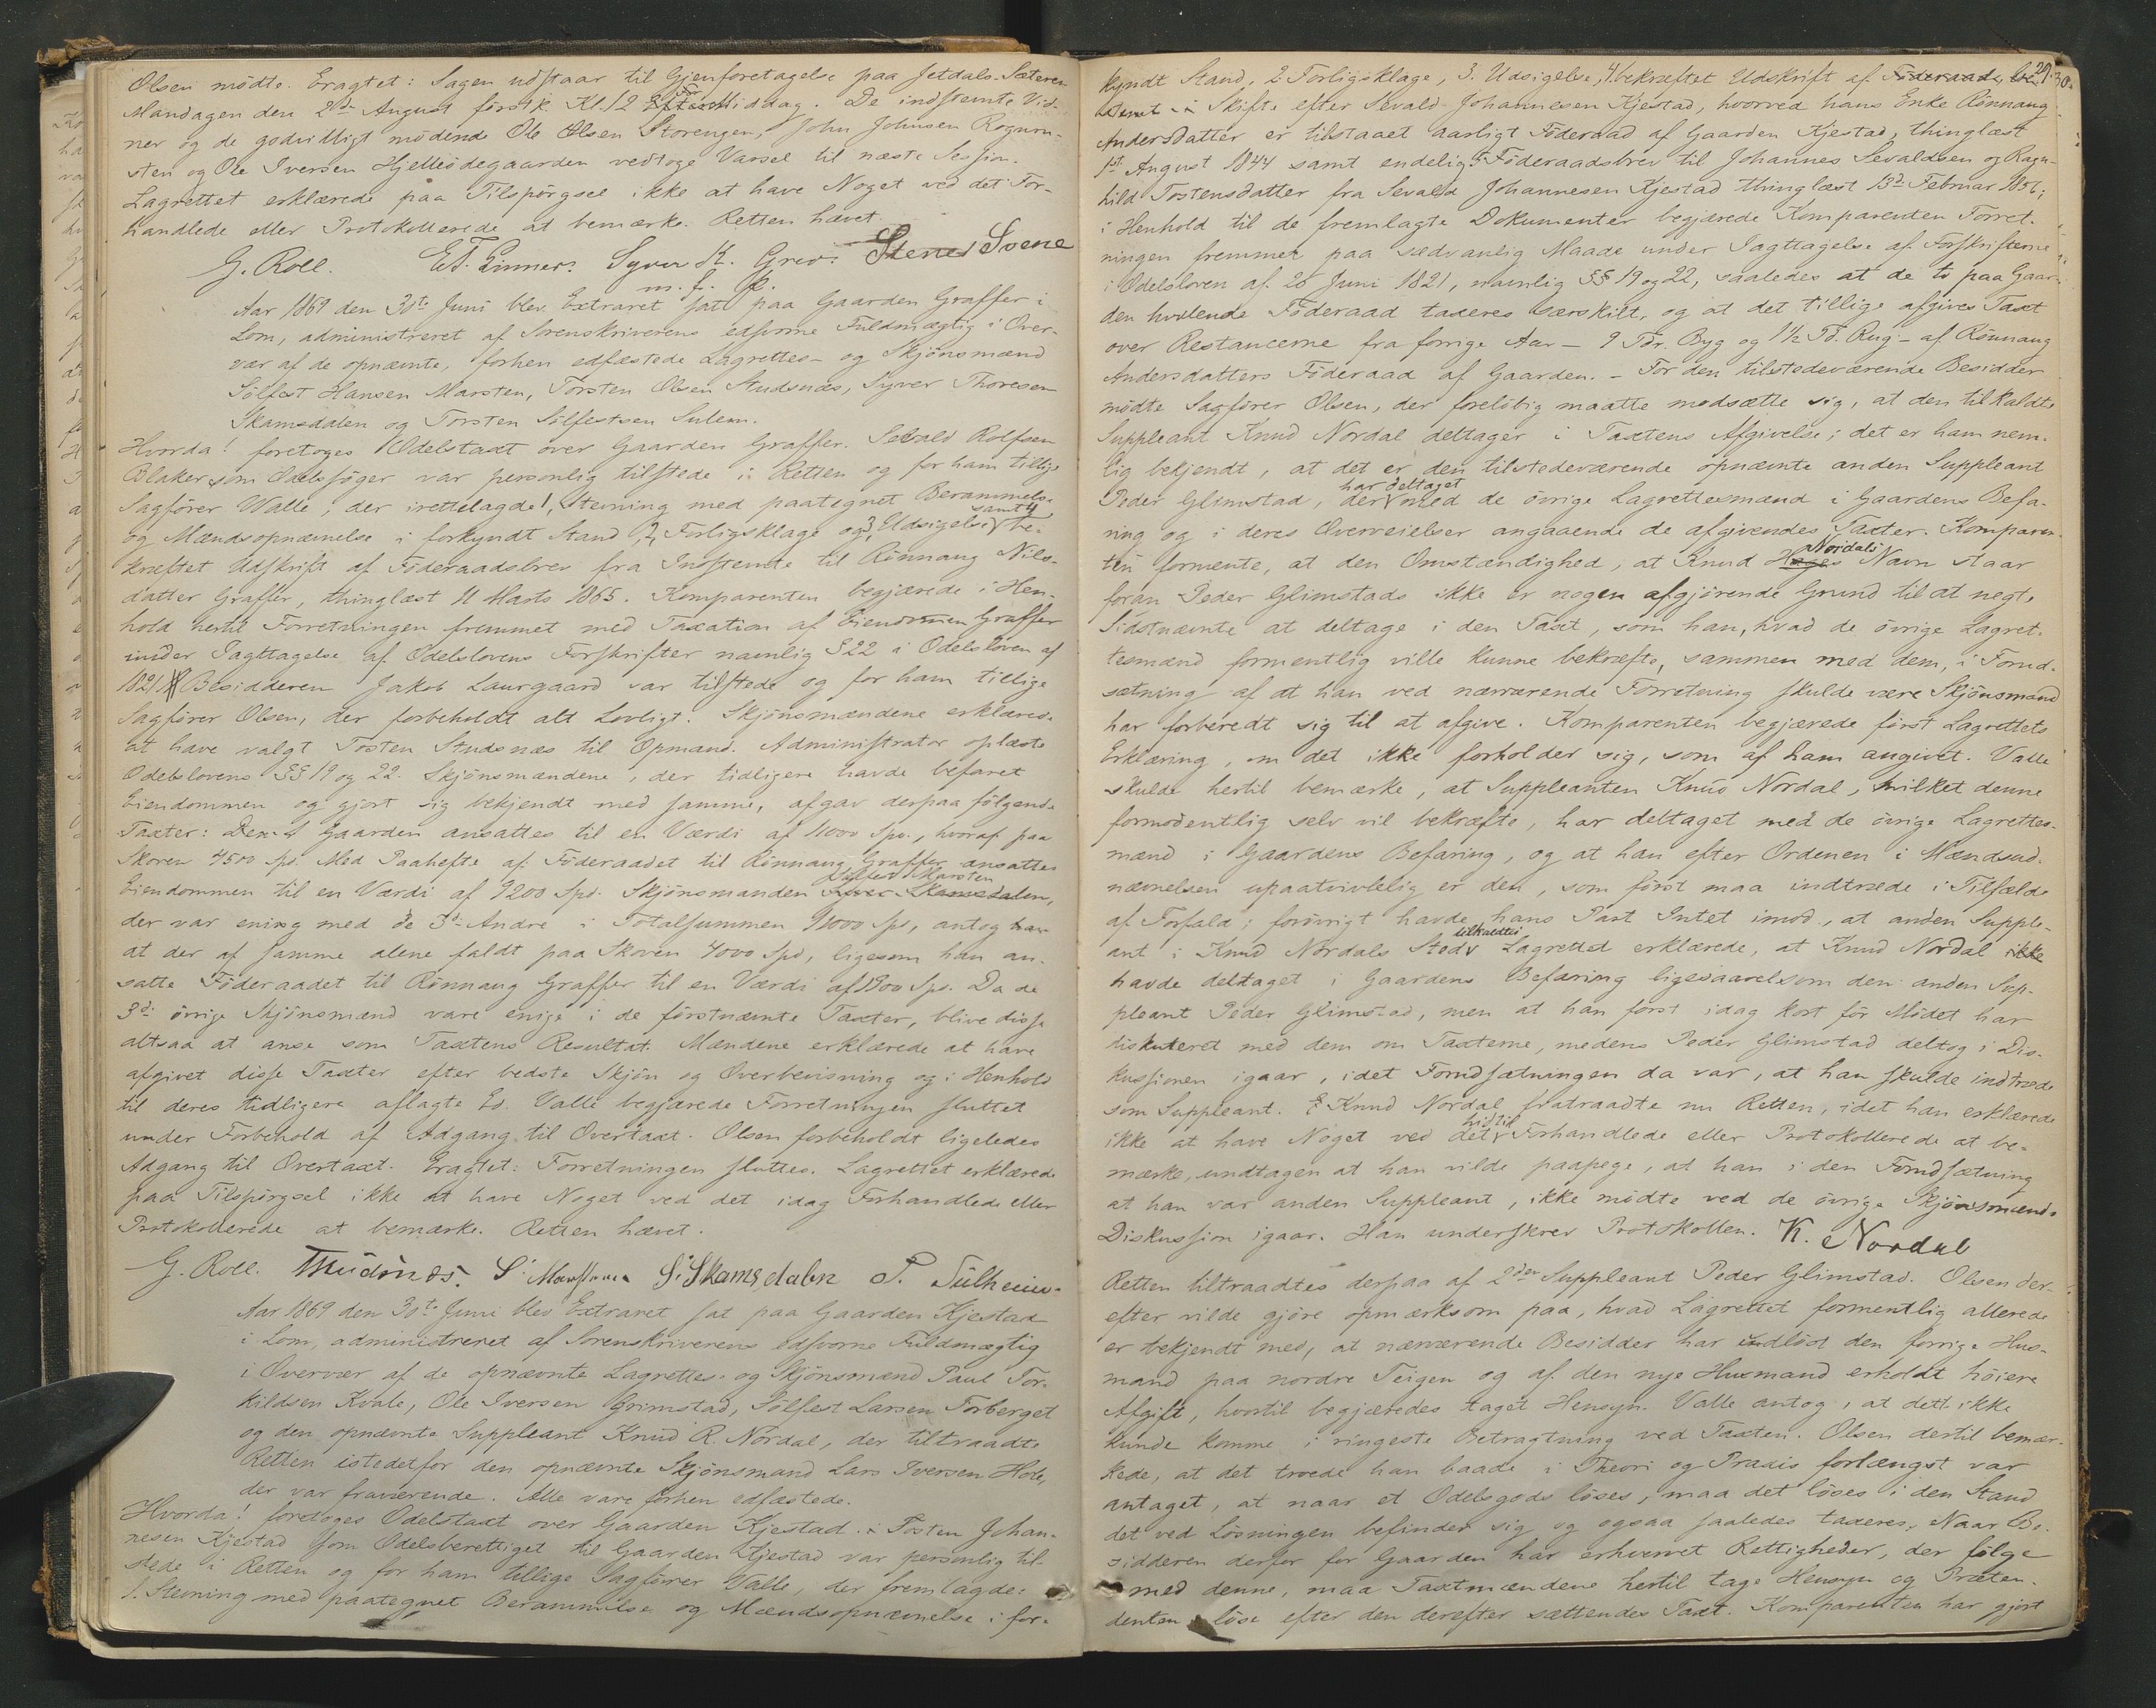 Olsen mödte. Eragtet: Sagen udstaar til Gjenforetagelse paa Jetdals-Sæteren
Mandagen den 2den August förstk. Kl. 12 Middag. De indstemte Vid-
ner og de godvilligt mödende Ole Olsen Storengen, John Johnsen Rognmo-
sten og Ole Iversen Hjelleödegaarden vedtoge Varsel til næste Session.
Lagrettet erklærede paa Tilspörgsel ikke at have Noget ved det For-
handlede eller Protokollerede at bemærke. Retten hævet.
G. Roll. Syver
m. f. P.
Aar 1869 den 30te Juni blev Extraret sat paa Gaarden Graffer i
Lom, administreret af Sorenskriverens edsvorne Fuldmægtig i Over-
vær af de opnævnte, forhen edfæstede Lagrettes- og Skjönsmænd
Sölfest Hansen Marsten, Torsten Olsen Studsnæs, Syver Thoresen
Skamsdalen og Torsten Sölfestsen Sulem.
Hvorda! foretoges Odelstaxt over Gaarden Graffer. Sevald Rolfsen
Blaker som Odelssöger var personlig tilstede i Retten og for ham tillige
Sagförer Walle, der irettelagde 1, Stevning med paategnet Berammelse
og Mændsopnævnelse i forkyndt Stand, 2, Forligsklage og 3, Udsigelse samt 4, be-
kræftet Udskrift af Föderaadsbrev fra Indstevnte til Rönnaug Nils-
datter Graffer, thinglæst 11 Marts 1865. Komparenten begjærede i Hen-
hold hertil Forretningen fremmet med Taxation af Eiendommen Graffer
under Iagttagelse af Odelslovens Forskrifter navnlig § 22 i Odelsloven af
1821. Besidderen Jakob Laurgaard var tilstede og for ham tillige
Sagförer Olsen, der forbeholdt alt Lovligt. Skjönsmændene erklærede
at have valgt Tosten Studsnæs til Opmand. Administrator oplæste
Odelslovens §§ 19 og 22. Skjönsmændene, der tidligere havde befaret
Eiendommen og gjort sig bekjendt med samme, afgav derpaa fölgende
Taxter: Gaarden ansattes til en Værdi af 11000 Spd., hvoraf paa
Skoven 4500 Spd. Med Paahefte af Föderaadet til Rönnaug Graffer ansattes
Eiendommen til en Værdi af 9200 Spd. Skjönsmanden Sölfest Marsten
der var ening med de 3de Andre i Totalsummen 11000 Spd, antog
at der af samme alene faldt paa Skoven 4000 Spd, ligesom han an-
satte Föderaadet til Rönnaug Graffer til en Værdi af 1900 Spd. Da de
3de övrige Skjönsmænd vare enige i de förstnævnte Taxter, blive disse
altsaa at anse som Taxtens Resultat. Mændene erklærede at have
afgivet disse Taxter efter bedste Skjön og Overbevisning og i Henhold
til deres tidligere aflagte Ed. Valle begjærede Forretningen sluttet
under Forbehold af Adgang til Overtaxt. Olsen forbeholdt ligeledes
Adgang til Overtaxt. Eragtet: Forretningen sluttes. Lagrettet erklærede
paa Tilspörgsel ikke at have Noget ved det idag Forhandlede eller
Protokollerede at bemærke. Retten hævet.
G. Roll. TStudsnæs. S. Skamsdalen T. Sulheim
Aar 1869 den 30te Juni blev Extraret sat paa Gaarden Kjestad
i Lom, administreret af Sorenskriverens edsvorne Fuldmægtig
i Overvær af de opnævnte Lagrettes- og Skjönsmænd Paul Tor-
kildsen Kvale, Ole Iversen Grimstad, Sölfest Larsen Forberget
og den opnævnte Suppleant Knud R. Nordal, der tiltraadte
Retten istedetfor den opnævnte Skjönsmand Lars Iversen Hole,
der var fraværende. Alle vare forhen edfæstede.
Hvorda! foretoges Odelstaxt over Gaarden Kjestad. Tosten Johan-
nesen Kjestad som Odelsberettiget til Gaarden Kjestad var personlig til-
stede i Retten og for ham tillige Sagförer Valle, der fremlagde:
1. Stevning med paategnet Berammelse og Mændsopnævnelse i for-
29. 30.
kyndt Stand, 2. Forligsklage, 3. Udsigelse, 4. bekræftet Udskrift af
Skifte efter Sevald Johannesen Kjestad, hvorved hans Enke Rönnaug
Andersdatter er tilstaaet aarligt Föderaad af Gaarden Kjestad, thinglæst
1ste August 1844 samt endelig 5. Föderaadsbrev til Johannes Sevaldsen og Ragn-
hild Tostensdatter fra Sevald Johannesen Kjestad thinglæst 13de Februar 1856;
i Henhold til de fremlagte Dokumenter begjærede Komparenten Forret-
ningen fremmet paa sædvanlig Maade under Iagttagelse af Forskrifterne
i Odelsloven af 26 Juni 1821, navnlig §§ 19 og 22, saaledes at de to paa Gaar-
den hvilende Föderaad taxeres særskilt, og at det tillige afgives Taxt
over Restancerne fra forrige Aar – 9 Tdr. Byg og 1½ Td. Rug – af Rönnaug
Andersdatters Föderaad af Gaarden. – For den tilstedeværende Besidder
mödte Sagförer Olsen, der forelöbig maatte modsætte sig, at den tilkaldte
Suppleant Knud Nordal deltager i Taxtens Afgivelse; det er ham nem-
lig bekjendt, at det er den tilstedeværende opnævnte anden Suppleant
Peder Glimstad, der har deltaget med de övrige Lagrettesmænd i Gaardens Befa-
ring og i deres Overveielser angaaende de afgivendes Taxter. Komparen-
ten formente, at den Omstændighed, at Knud Nordals Navn staar
foran Peder Glimstads ikke er nogen afgjörende Grund til at negte
Sidstnævnte at deltage i den Taxt, som han, hvad de övrige Lagret-
tesmænd formentlig ville kunne bekræfte, sammen med dem, i Forud-
sætning af at han ved nærværende Forretning skulde være Skjönsmand
har forberedt sig til at afgive. Komparenten begjærede först Lagrettets
Erklæring, om det ikke forholder sig, som af ham angivet. Valle
skulde hertil bemærke, at Suppleanten Knud Nordal, hvilket denne
formodentlig selv vil bekræfte, har deltaget med de övrige Lagrettes-
mænd i Gaardens Befaring, og at han efter Ordenen i Mændsud-
nævnelsen upaatvivlelig er den, som först maa indtræde i Tilfælde
af Forfald; forövrigt havde hans Part Intet imod, at anden Supple-
ant i Knud Nordals Sted tilkaldtes. Lagrettet erklærede, at Knud Nordal ikke
havde deltaget i Gaardens Befaring ligesaavel som den anden Sup-
pleant Peder Glimstad, men at han först idag kort för Mödet har
diskuteret med dem om Taxterne, medens Peder Glimstad deltog i Dis-
kussionen igaar, idet Forudsætningen da var, at han skulde indtræde
som Suppleant. Knud Nordal fratraadte nu Retten, idet han erklærede
ikke at have Noget ved det hidtil Forhandlede eller Protokollerede at be-
mærke, undtagen at han vilde paapege, at han i den Forudsætning
at han var anden Suppleant, ikke mödte ved de övrige Skjönsmænds
Diskussion igaar. Han underskrev Protokollen. K. Nordal
Retten tiltraadtes derpaa af 2den Suppleant Peder Glimstad. Olsen der-
efter vilde gjöre opmærksom paa, hvad Lagrettet formentlig allerede
er bekjendt med, at nærværende Besidder har indlöst den forrige Hus-
mand paa nordre Teigen og af den nye Husmand erholdt höiere
Afgift, hvortil begjæredes taget Hensyn. Valle antog, at dette ikke
kunde komme i ringeste Betragtning ved Taxten. Olsen dertil bemær-
kede, at det troede han baade i Theori og Praxis forlængst var
antaget, at naar et Odelsgods löses, maa det löses i den Stand
det ved Lösningen befinder sig og ogsaa saaledes taxeres. Naar Be-
sidderen derfor for Gaarden har erhvervet Rettigheder, der fölge
med denne, maa Taxtmændene hertil tage Hensyn og Præten-
denten löse efter den derefter sættendes Taxt. Komparenten har gjort